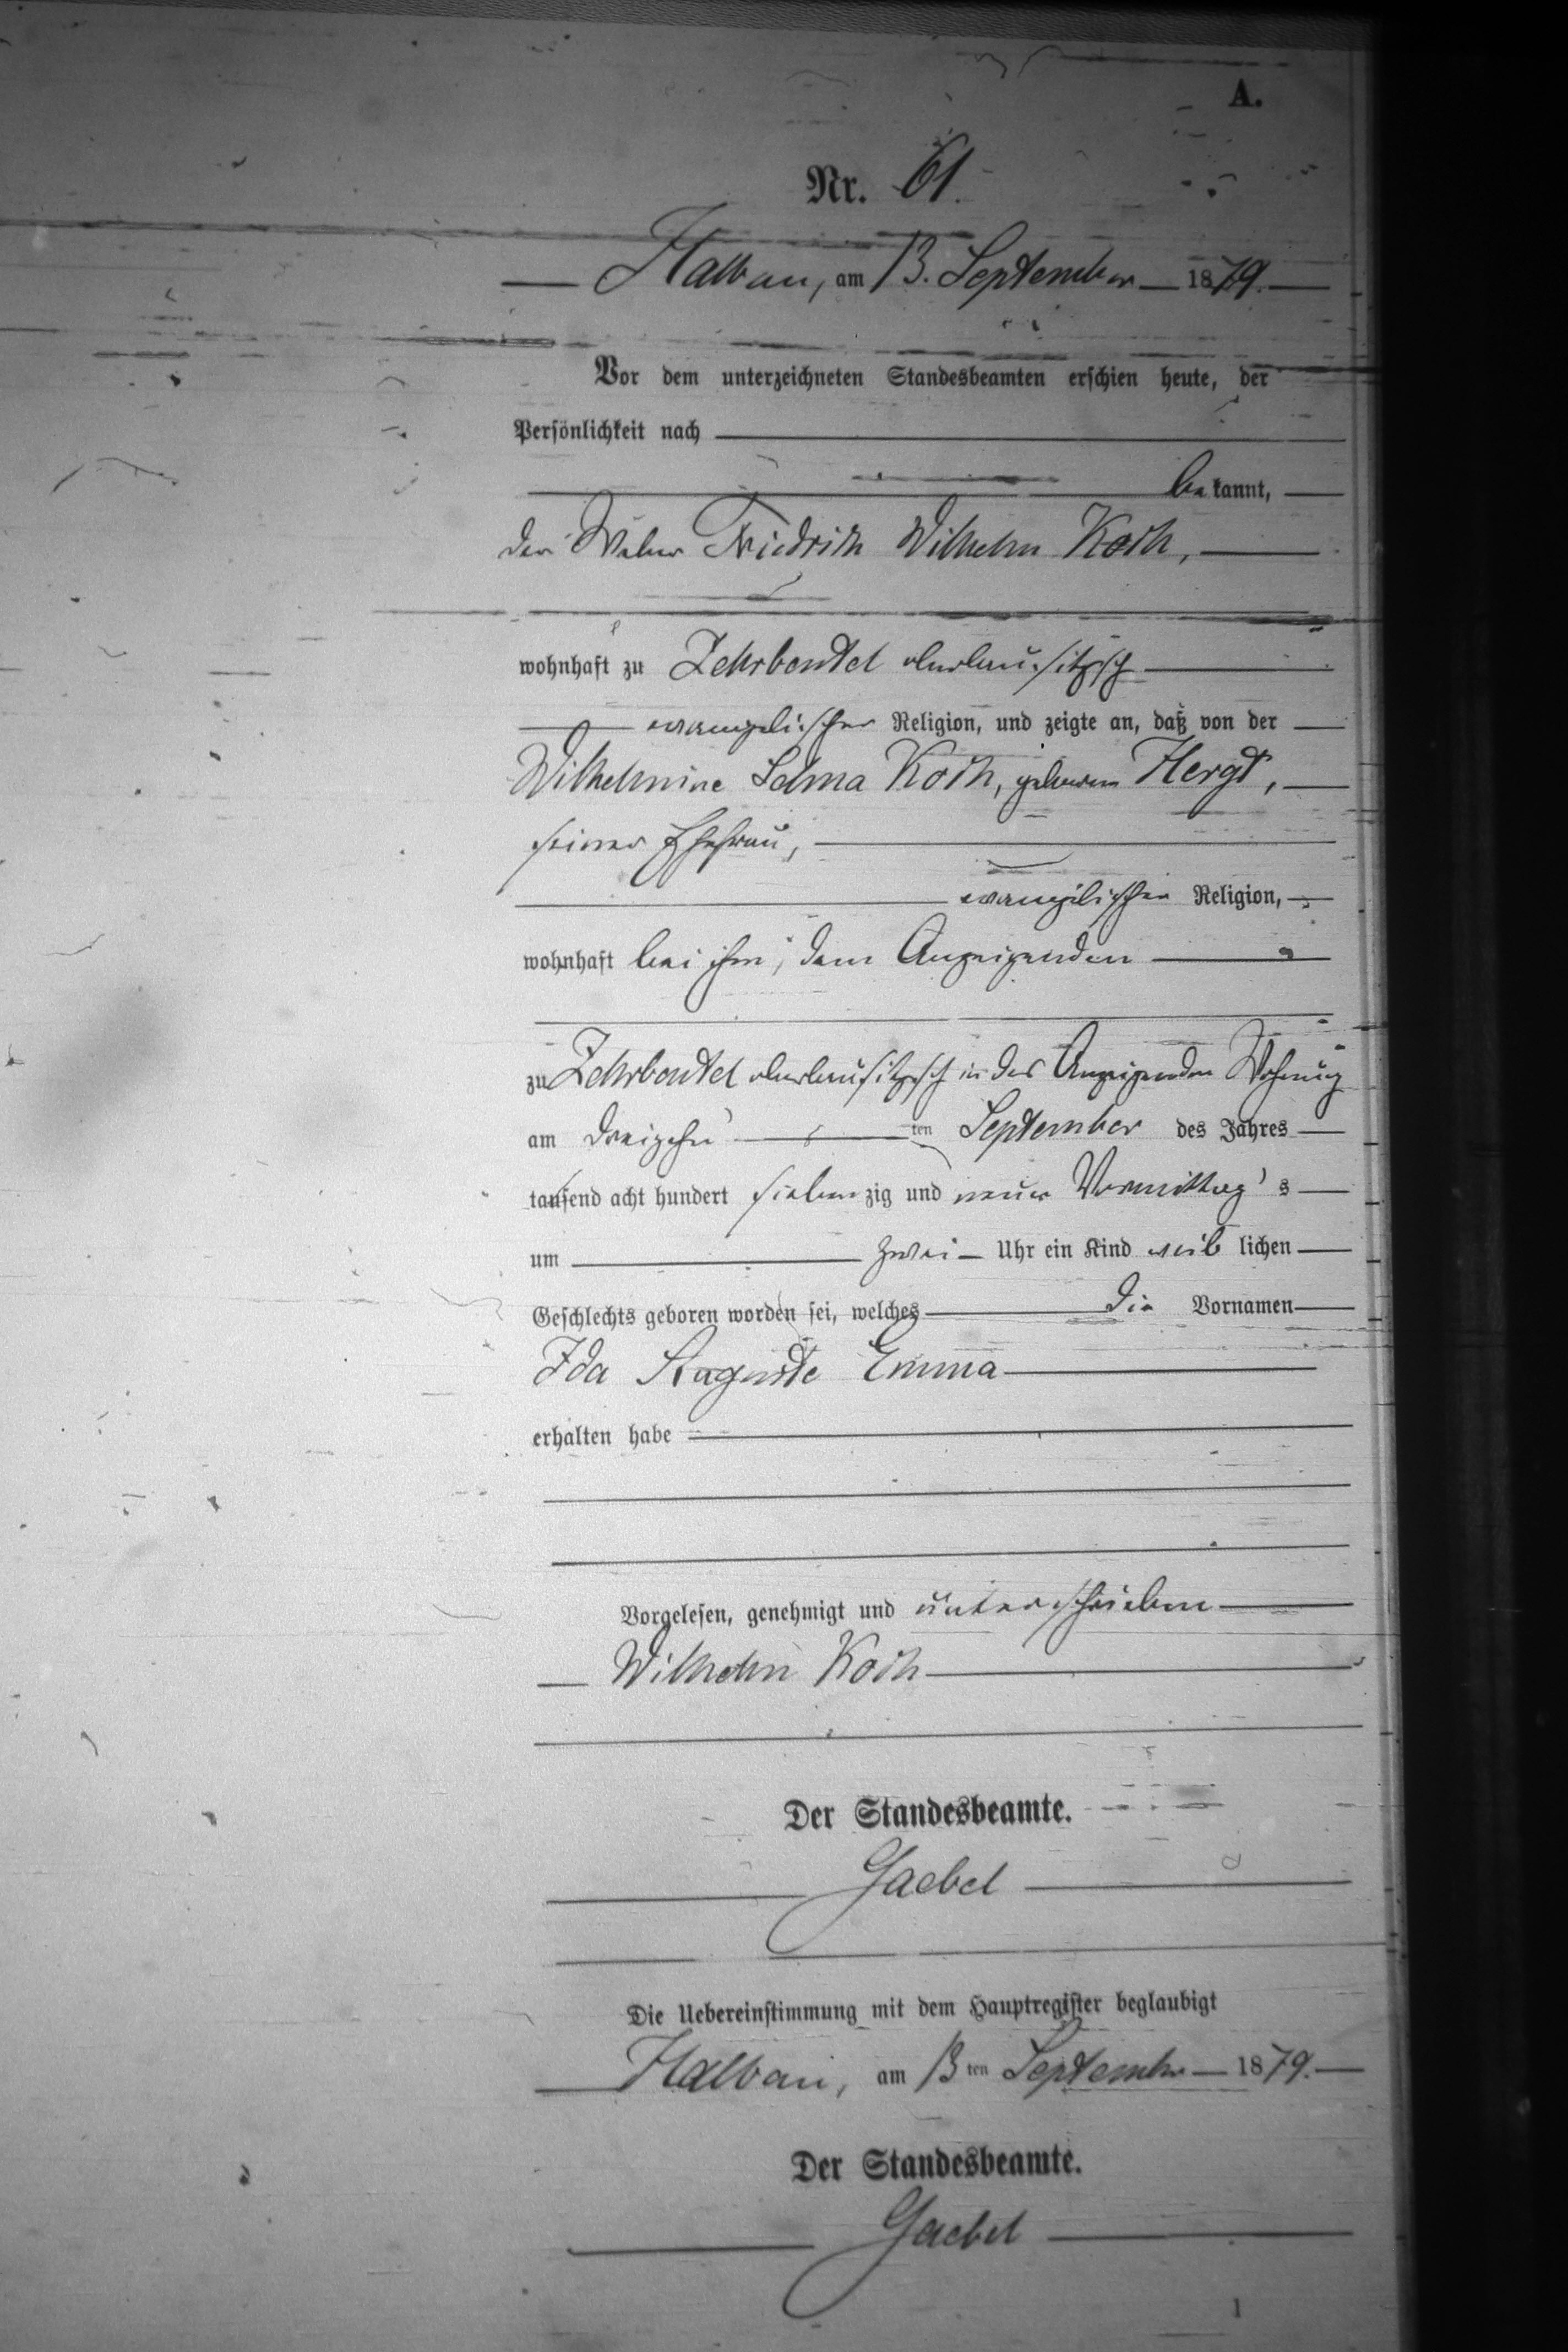 A.
Nr. 61.
Halbau, am 13. September 1879.
Vor dem unterzeichneten Standesbeamten erschien heute, der
Persönlichkeit nach
bekannt,
der Weber Friedrich Wilhelm Koch,
wohnhaft zu Zehrbeutel oberlausitzisch
evangelischer Religion, und zeigte an, daß von der
Wilhelmine Selma Koch, geborenen Hergt,
seiner Ehefrau,
evangelischer Religion,
wohnhaft bei ihm, dem Anzeigenden
zu Zehrbeutel oberlausitzisch in des Anzeigenden Wohnung
am dreizehnten September des Jahres
tausend acht hundert siebenzig und neun Vormittags
um zwei Uhr ein Kind weiblichen
Geschlechts geboren worden sei, welches die Vornamen
Ida Auguste Emma
erhalten habe
Vorgelesen, genehmigt und unterschrieben
Wilhelm Koch
Der Standesbeamte.
Gaebel
Die Uebereinstimmung mit dem Hauptregister beglaubigt
Halbau, am 13ten September 1879.
Der Standesbeamte.
Gaebel